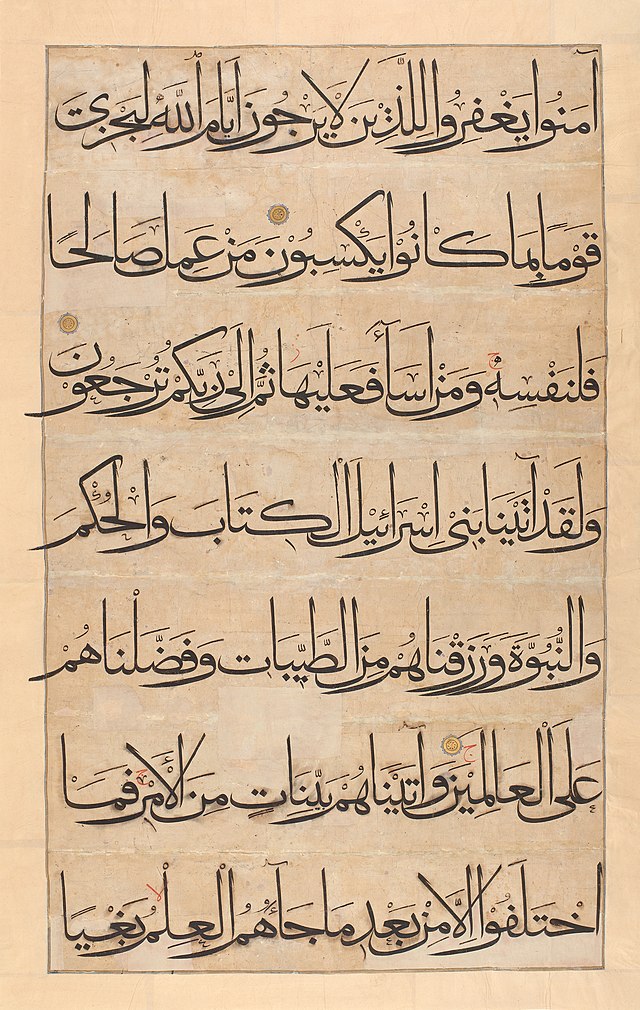 آمَنُوا يَغْفِرُوا لِلَّذِينَ لَا يَرْجُونَ أَيَّامَ اللَّهِ لِيَجْزِيَ
قَوْمًا بِمَا كَانُوا يَكْسِبُونَ مَنْ عَمِلَ صَالِحًا
فَلِنَفْسِهِ وَمَنْ أَسَاءَ فَعَلَيْهَا ثُمَّ إِلَىٰ رَبِّكُمْ تُرْجَعُونَ
وَلَقَدْ آتَيْنَا بَنِي إِسْرَائِيلَ الْكِتَابَ وَالْحُكْمَ
وَالنُّبُوَّةَ وَرَزَقْنَاهُمْ مِنَ الطَّيِّبَاتِ وَفَضَّلْنَاهُمْ
عَلَى الْعَالَمِينَ وَآتَيْنَاهُمْ بَيِّنَاتٍ مِنَ الْأَمْرِ فَمَا
اخْتَلَفُوا إِلَّا مِنْ بَعْدِ مَا جَاءَهُمُ الْعِلْمُ بَغْيًا